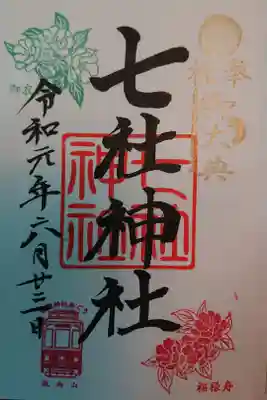 奉祝御大典
七社神社
七社神社
令和元年六月廿三日
飛鳥山
福禄寿